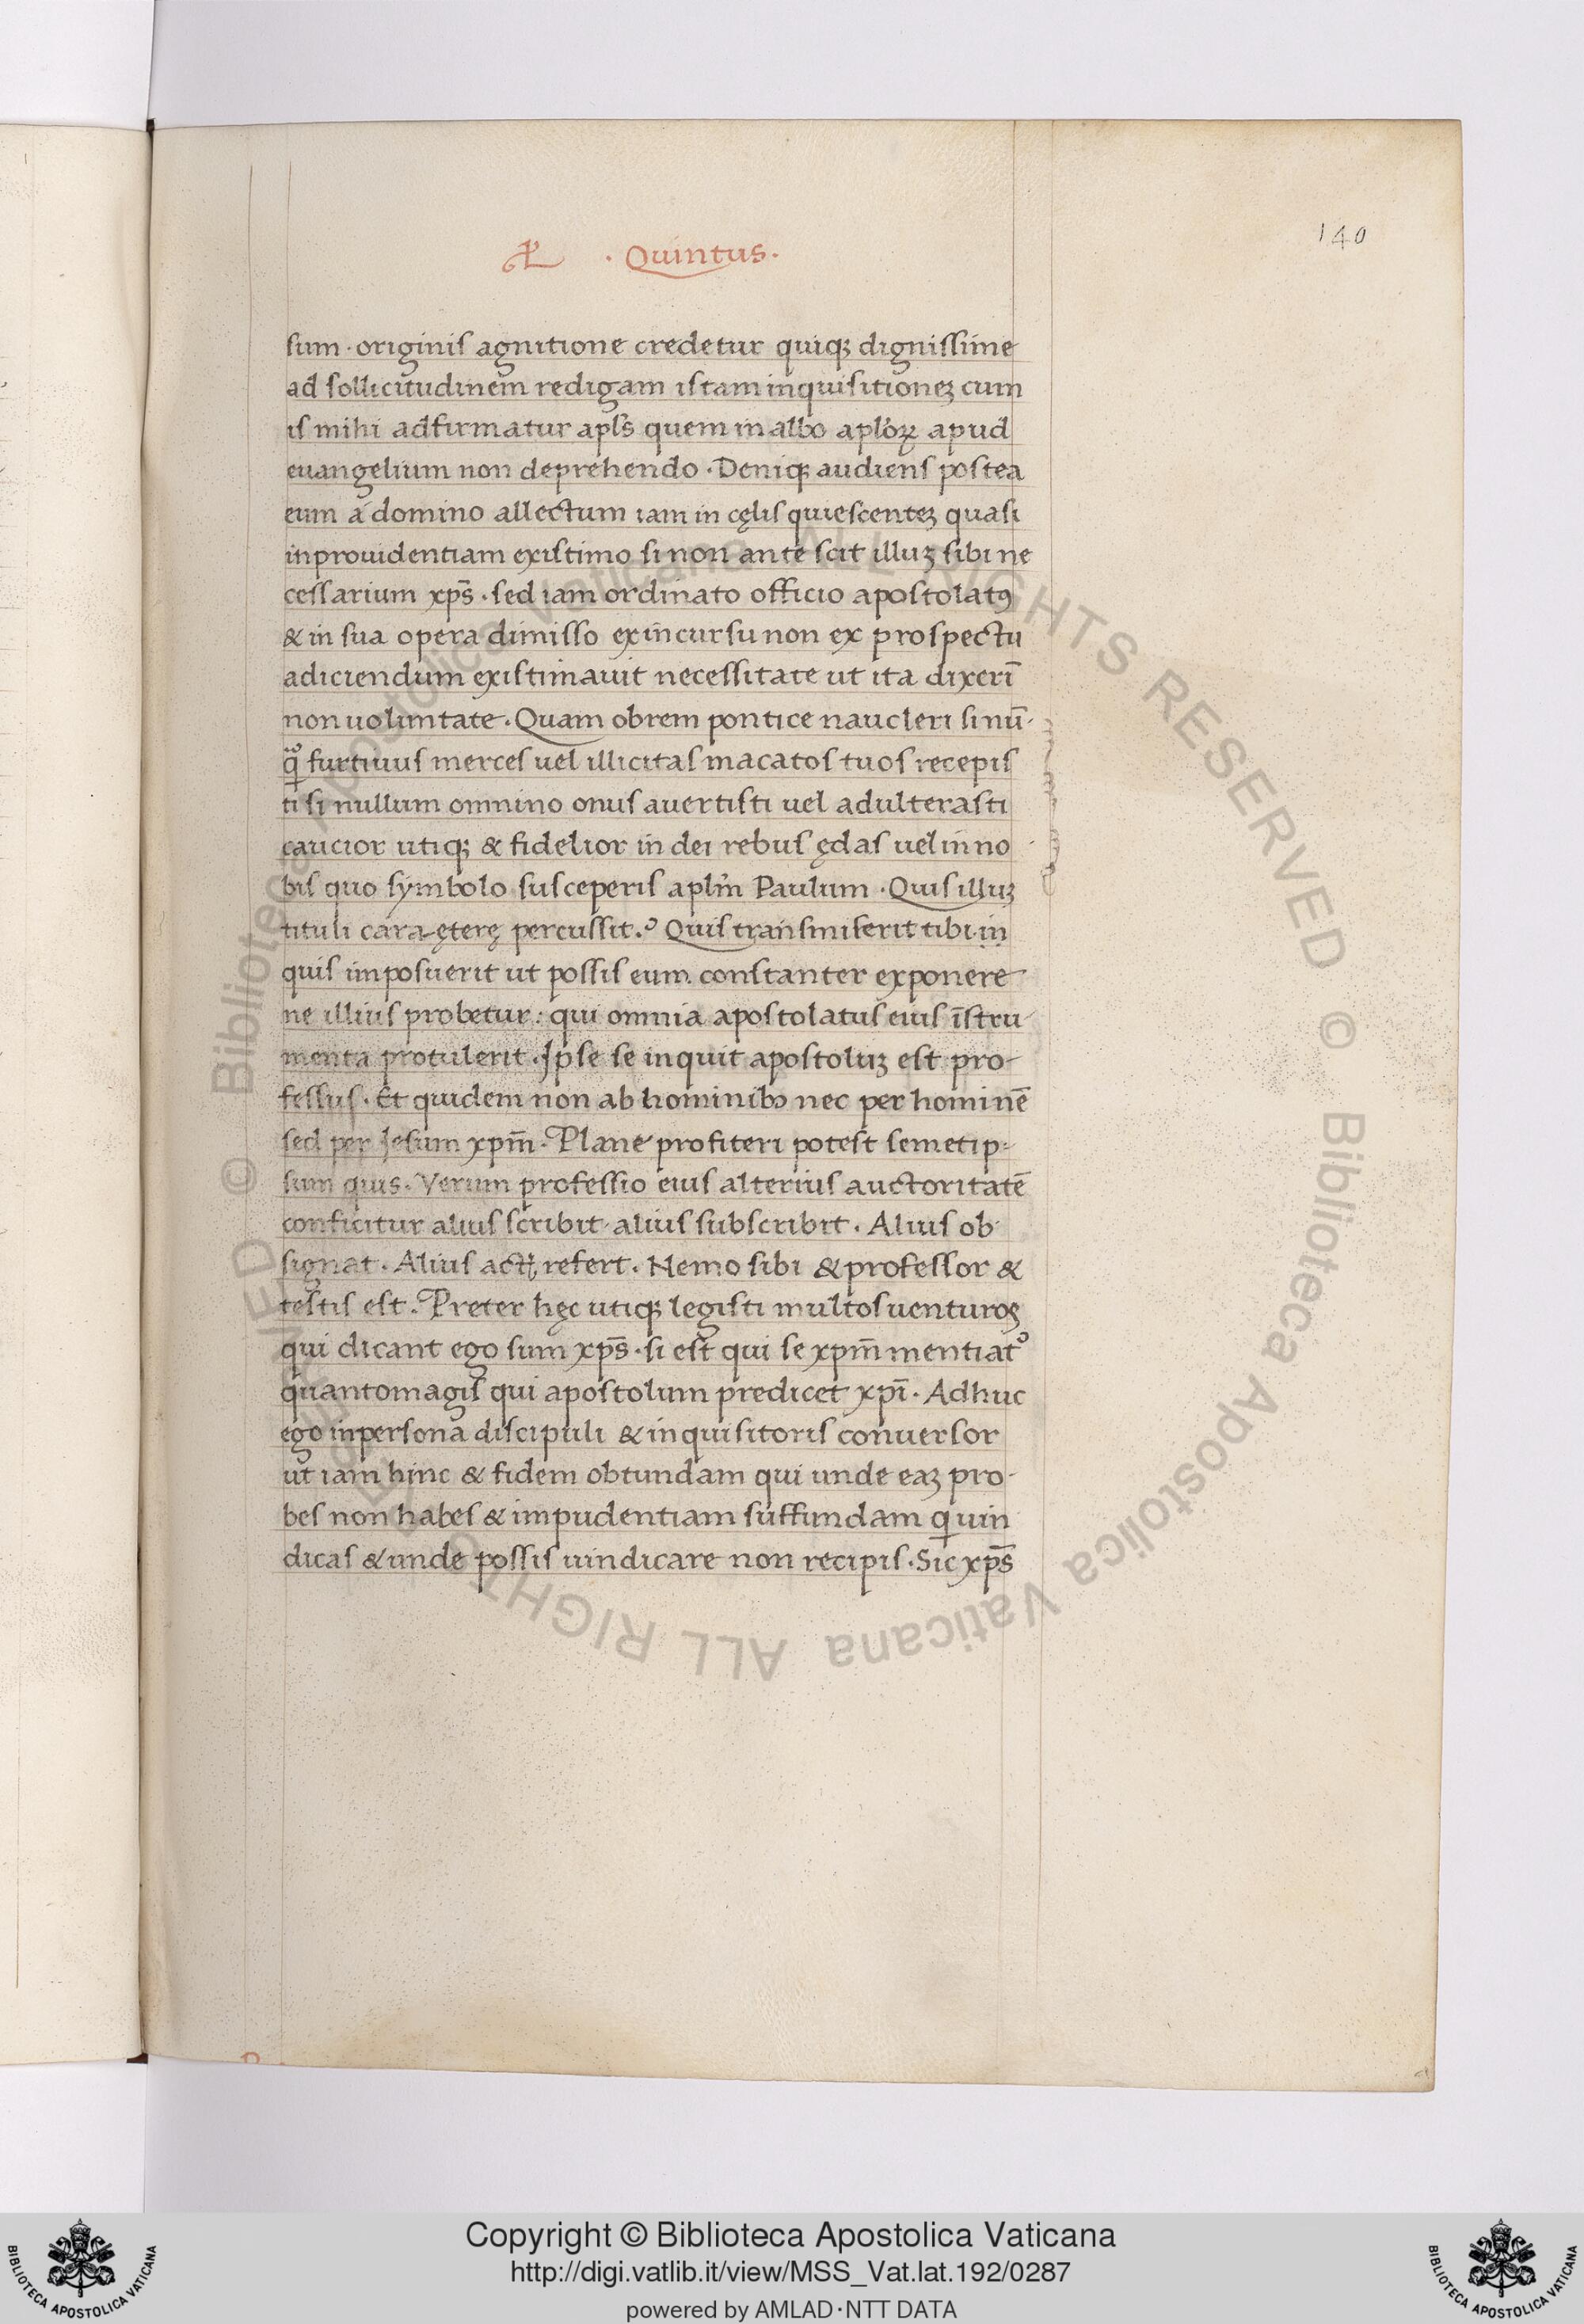 140
· Quintus ·
sum · originis agnitione credetur quiqꝫ dignissime
ad sollicitudinem redigam istam inquisitioneꝫ cum
is mihi adfirmatur apl̄s quem in albo aplōꝝ apud
euangelium non deprehendo · Deniqꝫ audiens postea
eum a domino allectum iam in cęlis quiescenteꝫ quasi
inprouidentiam existimo si non ante scit illuꝫ sibi ne
cessarium xp̄s · sed iam ordinato officio apostolatꝰ
& in sua opera dimisso ex incursu non ex prospectu
adiciendum existimauit necessitate ut ita dixerī
non uoluntate · Quam obrem pontice naucleri si nū-
furtiuus merces uel illicitas macatos tuos recepis
ti si nullum omnino onus auertisti uel adulterasti
caucior utiqꝫ & fidelior in dei rebus ędas uelim no
bis quo symbolo susceperis aplm̄ Paulum · Quis illuꝫ
tituli cara ęterę percussit.? Quis transmiserit tibi in
quis imposuerit ut possis eum constanter exponere
ne illius probetur : qui omnia apostolatus eius īstru
menta protulerit · Ipse se inquit apostoluꝫ est pro-
fessus · Et quidem non ab hominibꝫ nec per hominē
sed per Iesum xpm̄ · Plane profiteri potest semetip-
sum quis · Verum professio eius alterius auctoritatē
conficitur alius scribit alius subscribit · Alius ob
signat · Alius actꝫ refert · Nemo sibi & professor &
testis est · Preter hęc utiqꝫ legisti multos uenturos
qui dicant ego sum xp̄s · si est qui se xpm̄ mentiat᷑
quantomagis qui apostolum predicet xpī · Adhuc
ego in persona discipuli & inquisitoris conuersor
ut iam hinc & fidem obtundam qui unde eaꝫ pro-
bes non habes & impudentiam suffundam ꝗ uin
dicas & unde possis uindicare non recipis · Sic xp̄s
© Biblioteca Apostolica Vaticana ALL RIGHTS RESERVED © Biblioteca Apostolica Vaticana ALL RIGHTS RESERVED
Copyright © Biblioteca Apostolica Vaticana
http://digi.vatlib.it/view/MSS_Vat.lat.192/0287
powered by AMLAD·NTT DATA
BIBLIOTECA APOSTOLICA VATICANA
BIBLIOTECA APOSTOLICA VATICANA